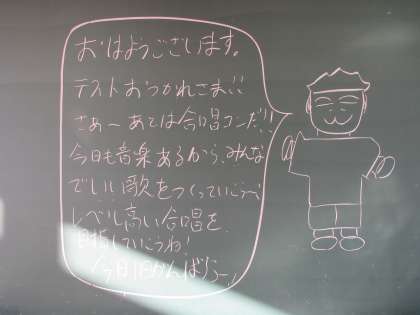 おはようございます。
テストおつかれさま!!
さぁ〜あとは合唱コンだ!!
今日も音楽あるから、みんな
でいい歌をつくっていこう〜
レベル高い合唱を
目指していこうね!
今日1日がんばろー